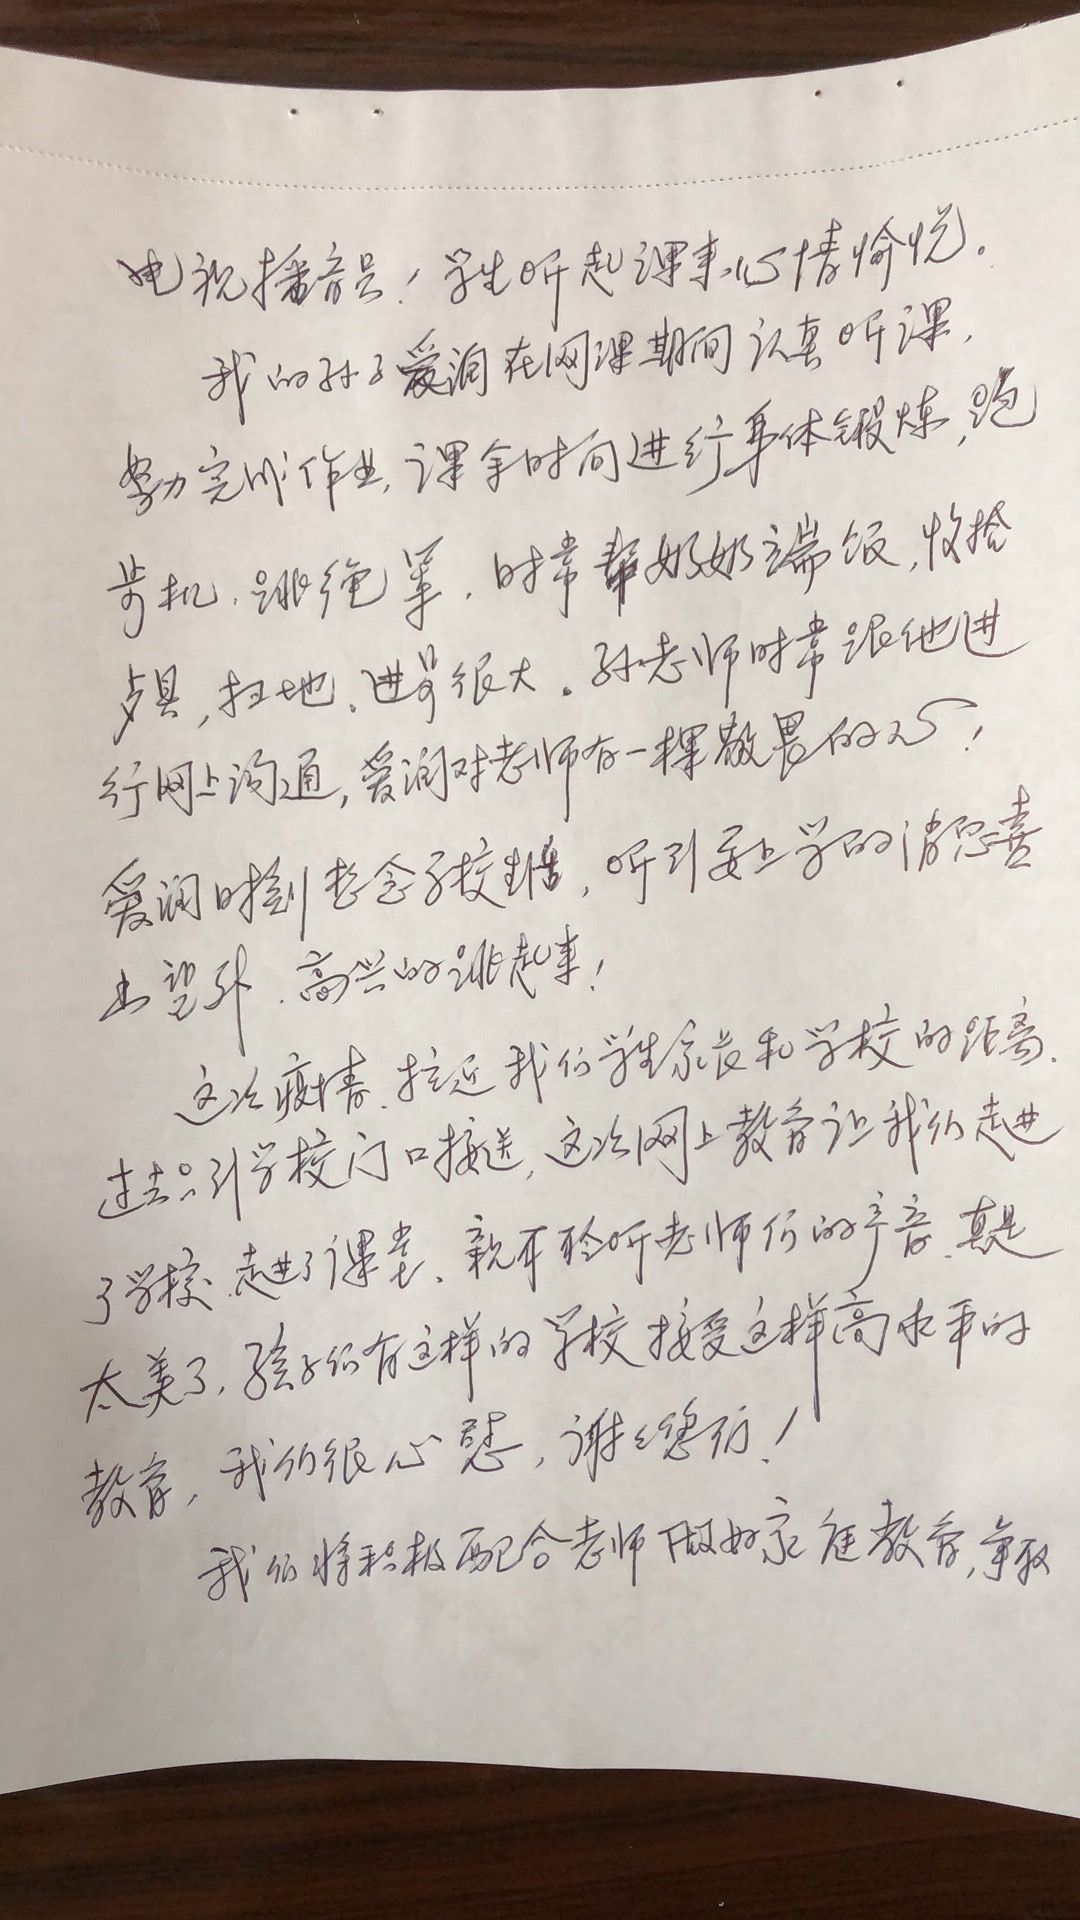 电视播音员！学生听起课来心情愉悦。
我的孙子爱润在网课期间认真听课，
努力完成作业，课余时间进行身体锻炼，跑
步机、跳绳等，时常帮奶奶端饭，收拾
桌具，扫地、进步很大。孙老师时常跟他进
行网上沟通，爱润对老师有一棵敬畏的心！
爱润时刻想念学校生活，听到要上学的消息喜
出望外、高兴的跳起来！
这次疫情、拉近我们学生家长和学校的距离、
过去只到学校门口接送，这次网上教育让我们走进
了学校、走进了课堂、亲耳聆听老师们的声音、真是
太美了，孩子们有这样的学校接受这样高水平的
教育，我们很心慰，谢谢您们！
我们将积极配合老师做好家庭教育，争取